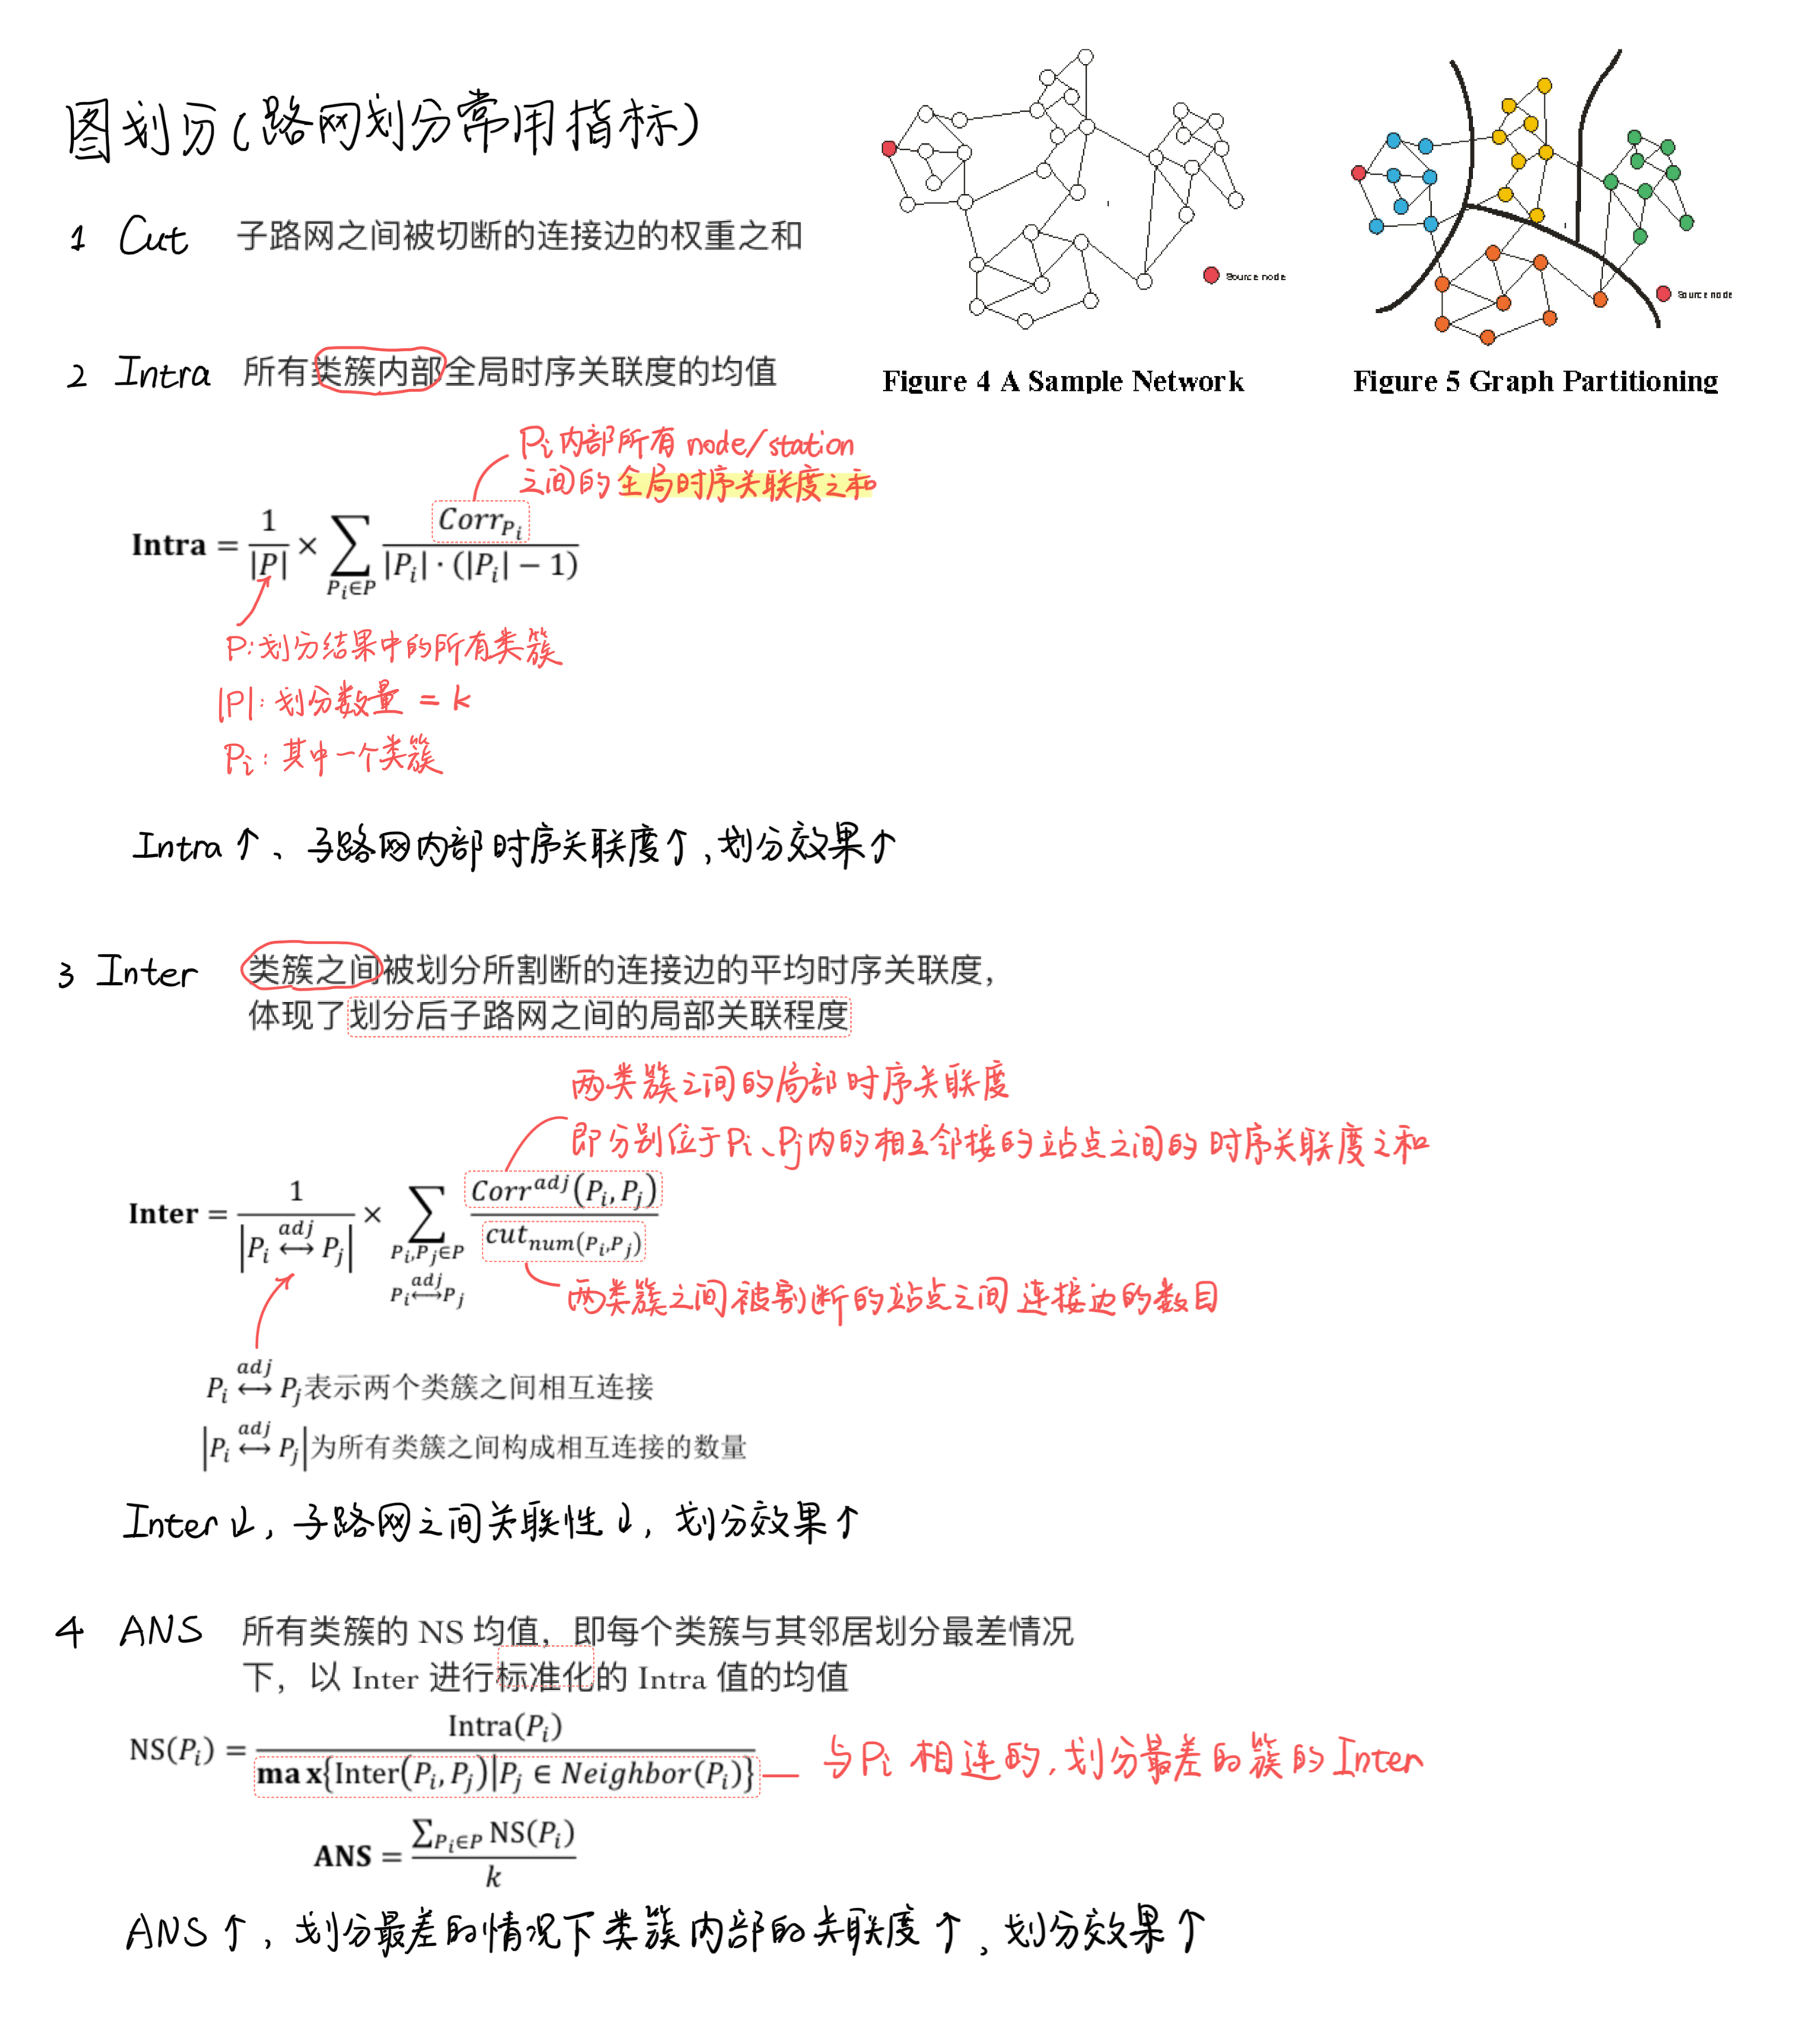 图划分(路网划分常用指标)
Source node
Source node
Figure 4 A Sample Network
Figure 5 Graph Partitioning
1 Cut 子路网之间被切断的连接边的权重之和
2 Intra 所有类簇内部全局时序关联度的均值
Pi内部所有 node/station
之间的全局时序关联度之和
Intra = 1/|P| × ∑_{P_i∈P} Corr_{P_i} / (|P_i|·(|P_i| − 1))
P:划分结果中的所有类簇
|P|:划分数量 = k
Pi:其中一个类簇
Intra↑、子路网内部时序关联度↑,划分效果↑
3 Inter 类簇之间被划分所割断的连接边的平均时序关联度,
体现了划分后子路网之间的局部关联程度
两类簇之间的局部时序关联度
即分别位于Pi、Pj内的相互邻接的站点之间的时序关联度之和
Inter = 1/|P_i ⟷^{adj} P_j| × ∑_{P_i,P_j∈P, P_i ⟷^{adj} P_j} Corr^{adj}(P_i,P_j) / cut_{num(P_i,P_j)}
两类簇之间被割断的站点之间连接边的数目
P_i ⟷^{adj} P_j表示两个类簇之间相互连接
|P_i ⟷^{adj} P_j|为所有类簇之间构成相互连接的数量
Inter↓,子路网之间关联性↓,划分效果↑
4 ANS 所有类簇的 NS 均值，即每个类簇与其邻居划分最差情况
下，以 Inter 进行标准化的 Intra 值的均值
NS(P_i) = Intra(P_i) / max{Inter(P_i,P_j)|P_j ∈ Neighbor(P_i)}
与Pi相连的,划分最差的簇的Inter
ANS = ∑_{P_i∈P} NS(P_i) / k
ANS↑,划分最差的情况下类簇内部的关联度↑、划分效果↑